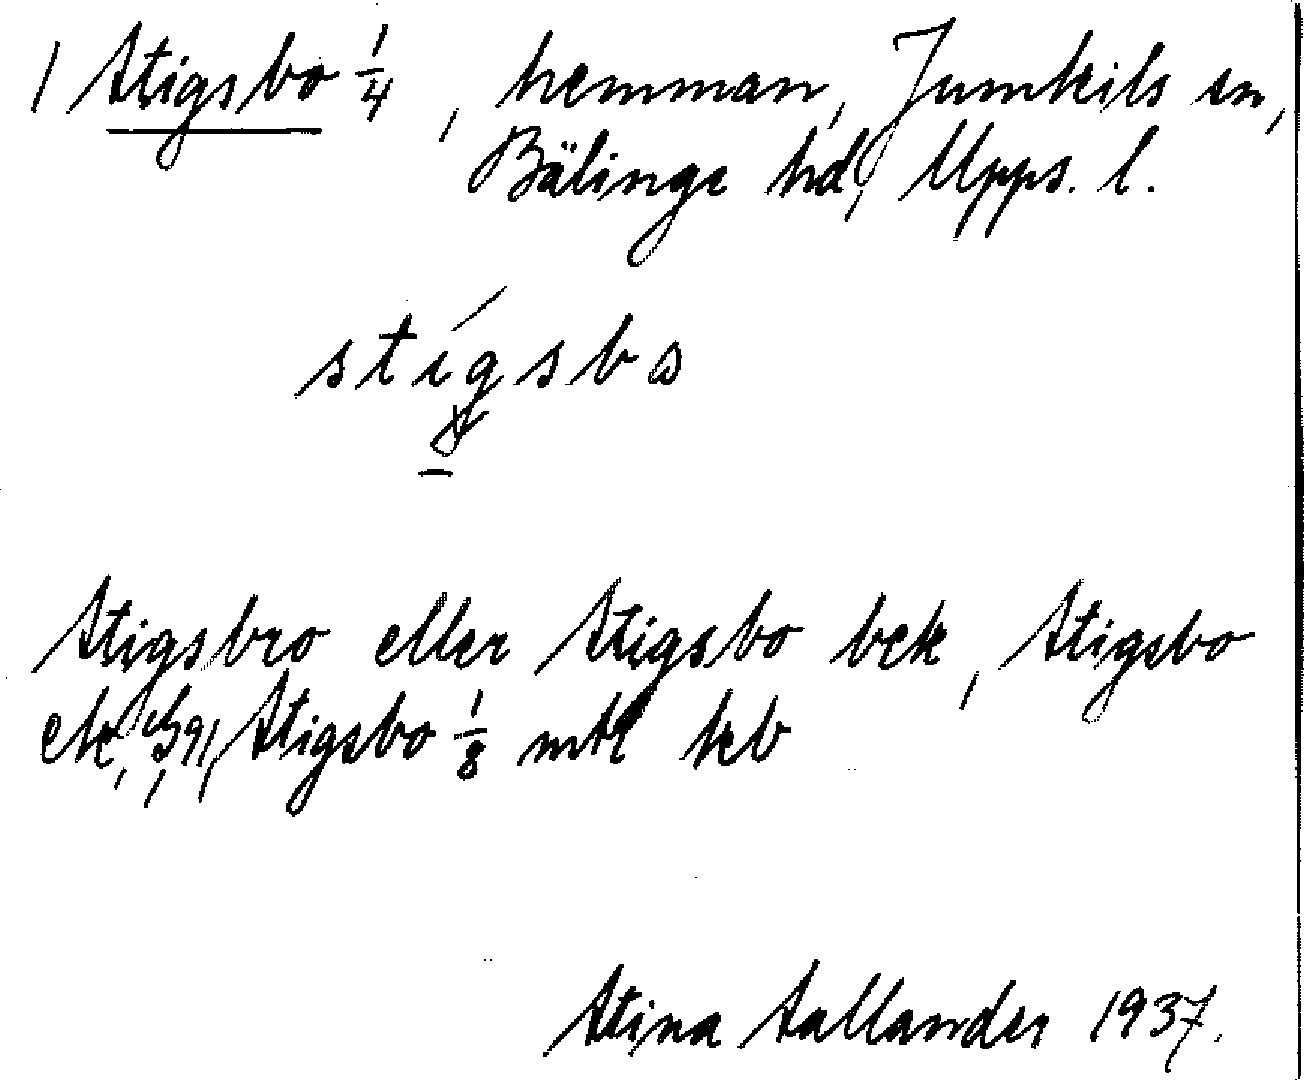 1 Stigsbo 1/4, hemman, Jumkils sn,
Bälinge hd, Upps. l.
stígsbω
Stigsbro eller Stigsbo bek, Stigsbo
ek, Stigsbo 1/8 mtl keb
Stina Sallander 1937.